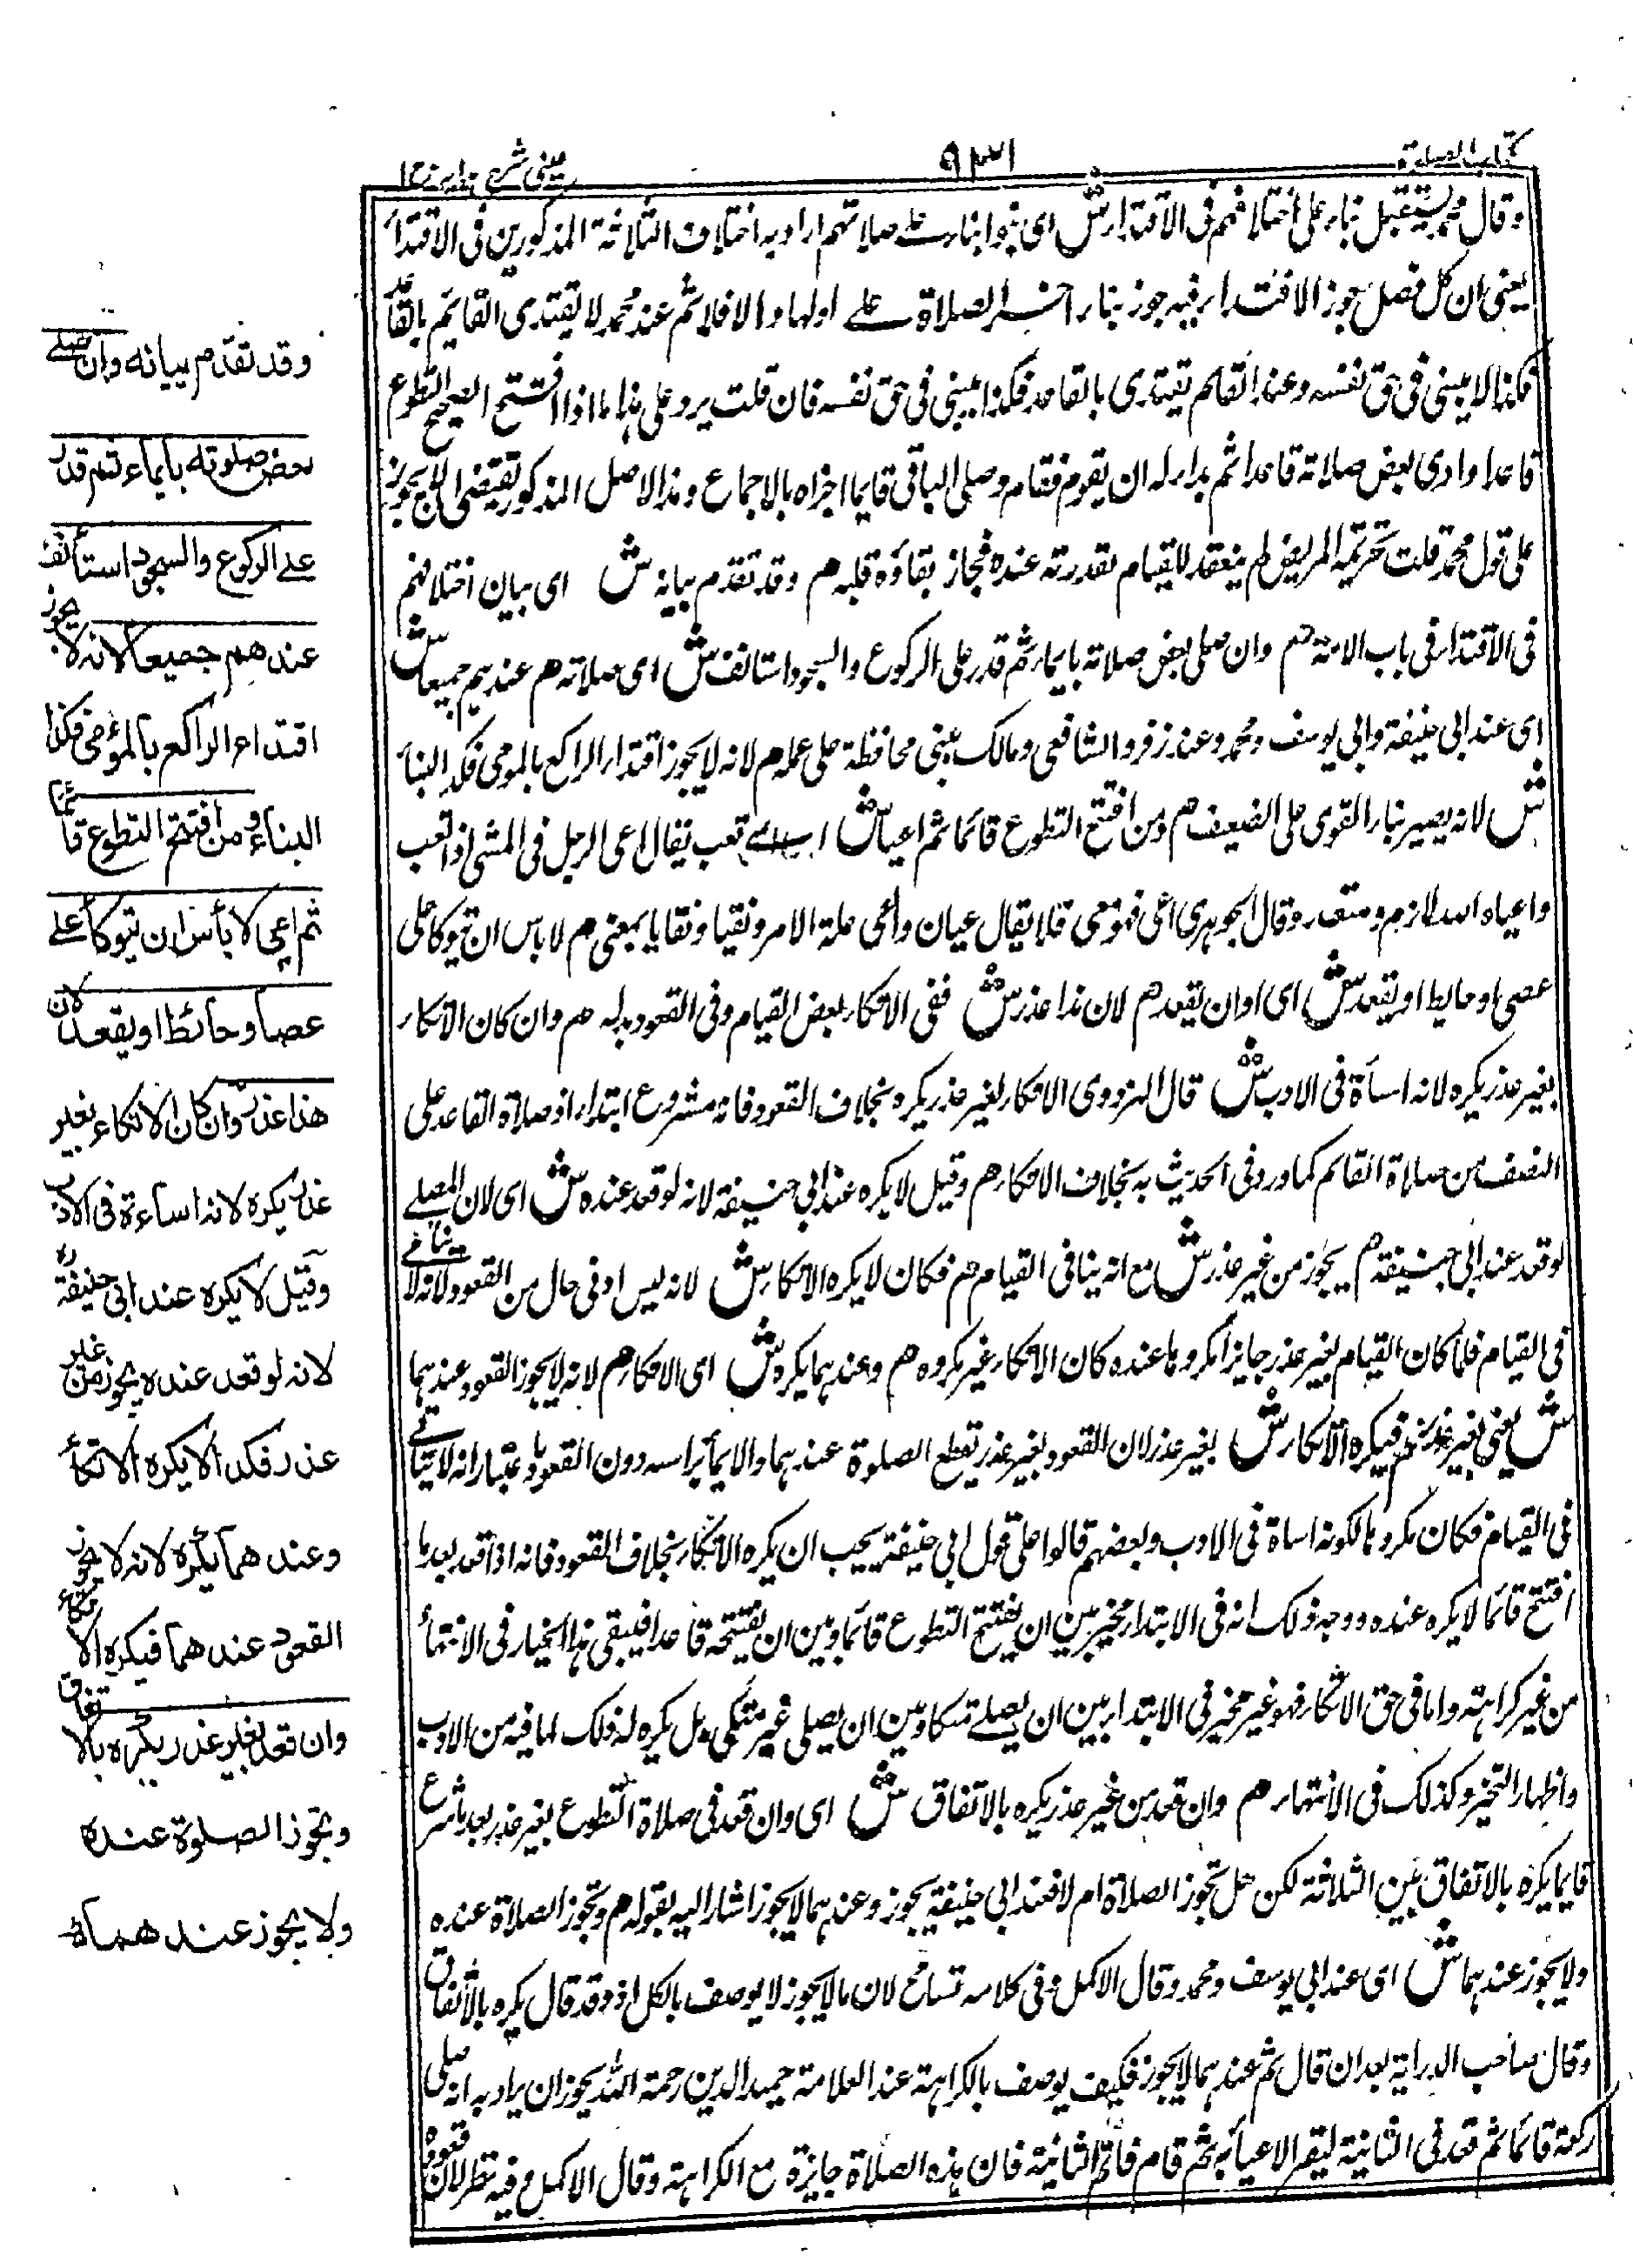 كتاب الصلوة
٩٣١
عيني شرح هدايه ج١
وقال محمد يستقبل بناء على اختلافهم في الاقتداء ش اى بنوا بناء على صلاتهم اراد به اختلاف الثلاثة المذكورين في الاقتداء
يعني ان كل فصل جوز الاقتداء فيه جوز بناء اخر الصلاة على اولها والا فلا ثم عند محمد لا يقتدى القايم بالقاعد
فكذا لا يبنى في حق نفسه وعندا القايم يقتدى بالقاعد فكذا يبنى في حق نفسه فان قلت يرد على هذا ما اذا افتتح الصحيح التطوع
قاعدا وادى بعض صلاته قاعدا ثم بدا له ان يقوم فقام وصلى الباقى قايما اجزاه بالاجماع وهذا الاصل المذكور يقتضى ان لا يجوز
على قول محمد قلت تحريمة المريض لم ينعقد للقيام لقدرته عنده فجاز بقاؤه قلبه م وقد تقدم بيانه ش اى بيان اختلافهم
في الاقتداء في باب الامامة م وان صلى بعض صلاته بايماء ثم قدر على الركوع والسجود استانف ش اى صلاته م عندهم جميعا ش
اى عند ابى حنيفة وابى يوسف ومحمد وعند زفر والشافعى ومالك يبنى محافظة على عمله م لانه لا يجوز اقتداء الراكع بالمومى فكذا البناء
ش لانه يصير بناء القوى على الضعيف م ومن افتتح التطوع قائما ثم اعيا ش اى تعب يقال اعى الرجل في المشى اذا تعب
واعياه الله لازم ومتعد وقال الجوهرى اعى فهو معى فلا يقال عيان واعى علة الامر وتعيا وتعايا بمعنى م لا باس ان يتوكا على
عصى او حايط او يقعد ش اى او ان يقعد م لان هذا عذر ش ففى الاتكاء بعض القيام وفى القعود بدله م وان كان الاتكاء
بغير عذر يكره لانه اساءة في الادب ش قال البزدوى الاتكاء لغير عذر يكره بخلاف القعود فانه مشروع ابتداء اذ صلاة القاعد على
النصف من صلاة القائم كما ورد فى الحديث به بخلاف الاتكاء م وقيل لا يكره عند ابى حنيفة لانه لو قعد عنده ش اى لان المصلى
لو قعد عند ابى حنيفة م يجوز من غير عذر ش مع انه ينافى القيام م فكان لا يكره الاتكاء ش لانه ليس ادنى حال من القعود ولانه لا ينافى
في القيام فلما كان القيام بغير عذر جايزا مكروها عنده كان الاتكاء غير مكروه م وعندهما يكره ش اى الاتكاء م لانه لا يجوز القعود عندهما
ش يعنى بغير عذر م فيكره الاتكاء ش بغير عذر لان القعود بغير عذر يقطع الصلوة عندهما والايماء براسه دون القعود باعتبار انه لا ينافى
في القيام فكان مكروها لكونه اساة فى الادب وبعضهم قالوا على قول ابى حنيفة يجب ان يكره الاتكاء بخلاف القعود فانه اذا قعد بعد ما
افتتح قائما لا يكره عنده ووجه ذلك انه فى الابتداء مخير بين ان يفتتح التطوع قائما وبين ان يفتتحه قاعدا فيبقى هذا الخيار فى الانتهاء
من غير كراهة واما فى حق الاتكاء فهو غير مخير فى الابتداء بين ان يصلى متكأ وبين ان يصلى غير متكى بل يكره له ذلك لما فيه من الادب
واظهار التخير وكذلك فى الانتهاء م وان قعد من غير عذر يكره بالاتفاق ش اى وان قعد فى صلاة التطوع بغير عذر بعد ما شرع
قايما يكره بالاتفاق بين الثلاثة لكن هل تجوز الصلاة ام لا فعند ابى حنيفة يجوز وعندهما لا يجوز اشار اليه بقوله م وتجوز الصلاة عنده
ولا يجوز عندهما ش اى عند ابى يوسف ومحمد وقال الاكمل وفى كلامه تسامح لان ما لا يجوز لا يوصف بالكراهة وقد قال يكره بالاتفاق
وقال صاحب الدراية بعد ان قال ثم عندهما لا يجوز فكيف يوصف بالكراهة عند العلامة حميد الدين رحمة الله يجوز ان يراد به انه صلى
ركعة قائما ثم قعد فى الثانية ليقر الاعياء به ثم قام فاتم الثانية فان هذه الصلاة جايزة مع الكراهة وقال الاكمل وفيه نظر لان قعوده
وقد تقدم بيانه وان صلى
بعض صلوته بايماء ثم قدر
على الركوع والسجود استأنف
عندهم جميعا لانه لا يجوز
اقتداء الراكع بالمومى فكذا
البناء ومن افتتح التطوع قائما
ثم اعيى لا بأس ان يتوكأ على
عصا او حائط او يقعد لان
هذا عذر وان كان الاتكاء بغير
عذر يكره لانه اساءة فى الادب
وقيل لا يكره عند ابى حنيفة ره
لانه لو قعد عنده يجوز من غير
عذر فكذا لا يكره الاتكاء
وعندهما يكره لانه لا يجوز
القعود عندهما فيكره الاتكاء
وان قعد بغير عذر يكره بالاتفاق
وتجوز الصلوة عنده
ولا يجوز عندهما